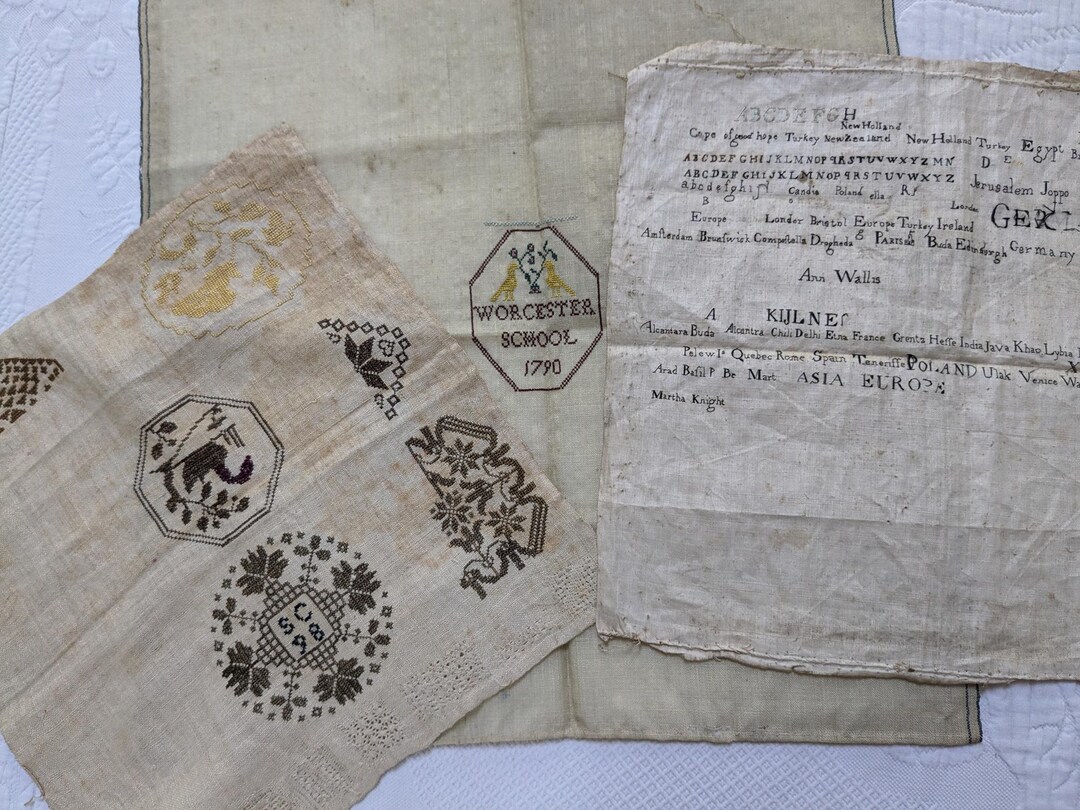 WORCESTER
SCHOOL
1790
ABCDEFGH
New Holland
Cape of good hope Turkey New Zealand New Holland Turkey Egypt
ABCDEFGHIJKLMNOPQRSTUVWXYZ MN D E
ABCDEFGHIJKLMNOPQRSTUVWXYZ Jerusalem Joppo
abcdefghij Candia Poland ella
B London GER
Europe Londer Bristol Europe Turkey Ireland
Amsterdam Brunswick Compostella Drogheda g PARISh Buda Edinburgh Germany
Ann Wallis
A KIJLNE
Alcantara Buda Alcantra Chili Delhi Etna France Grentz Hesse India Java Khao Lybia
Pelew Is Quebec Rome Spain Teneriffe POLAND Ulak Venice
Arad Basil P Be Mart ASIA EUROPE
Martha Knight